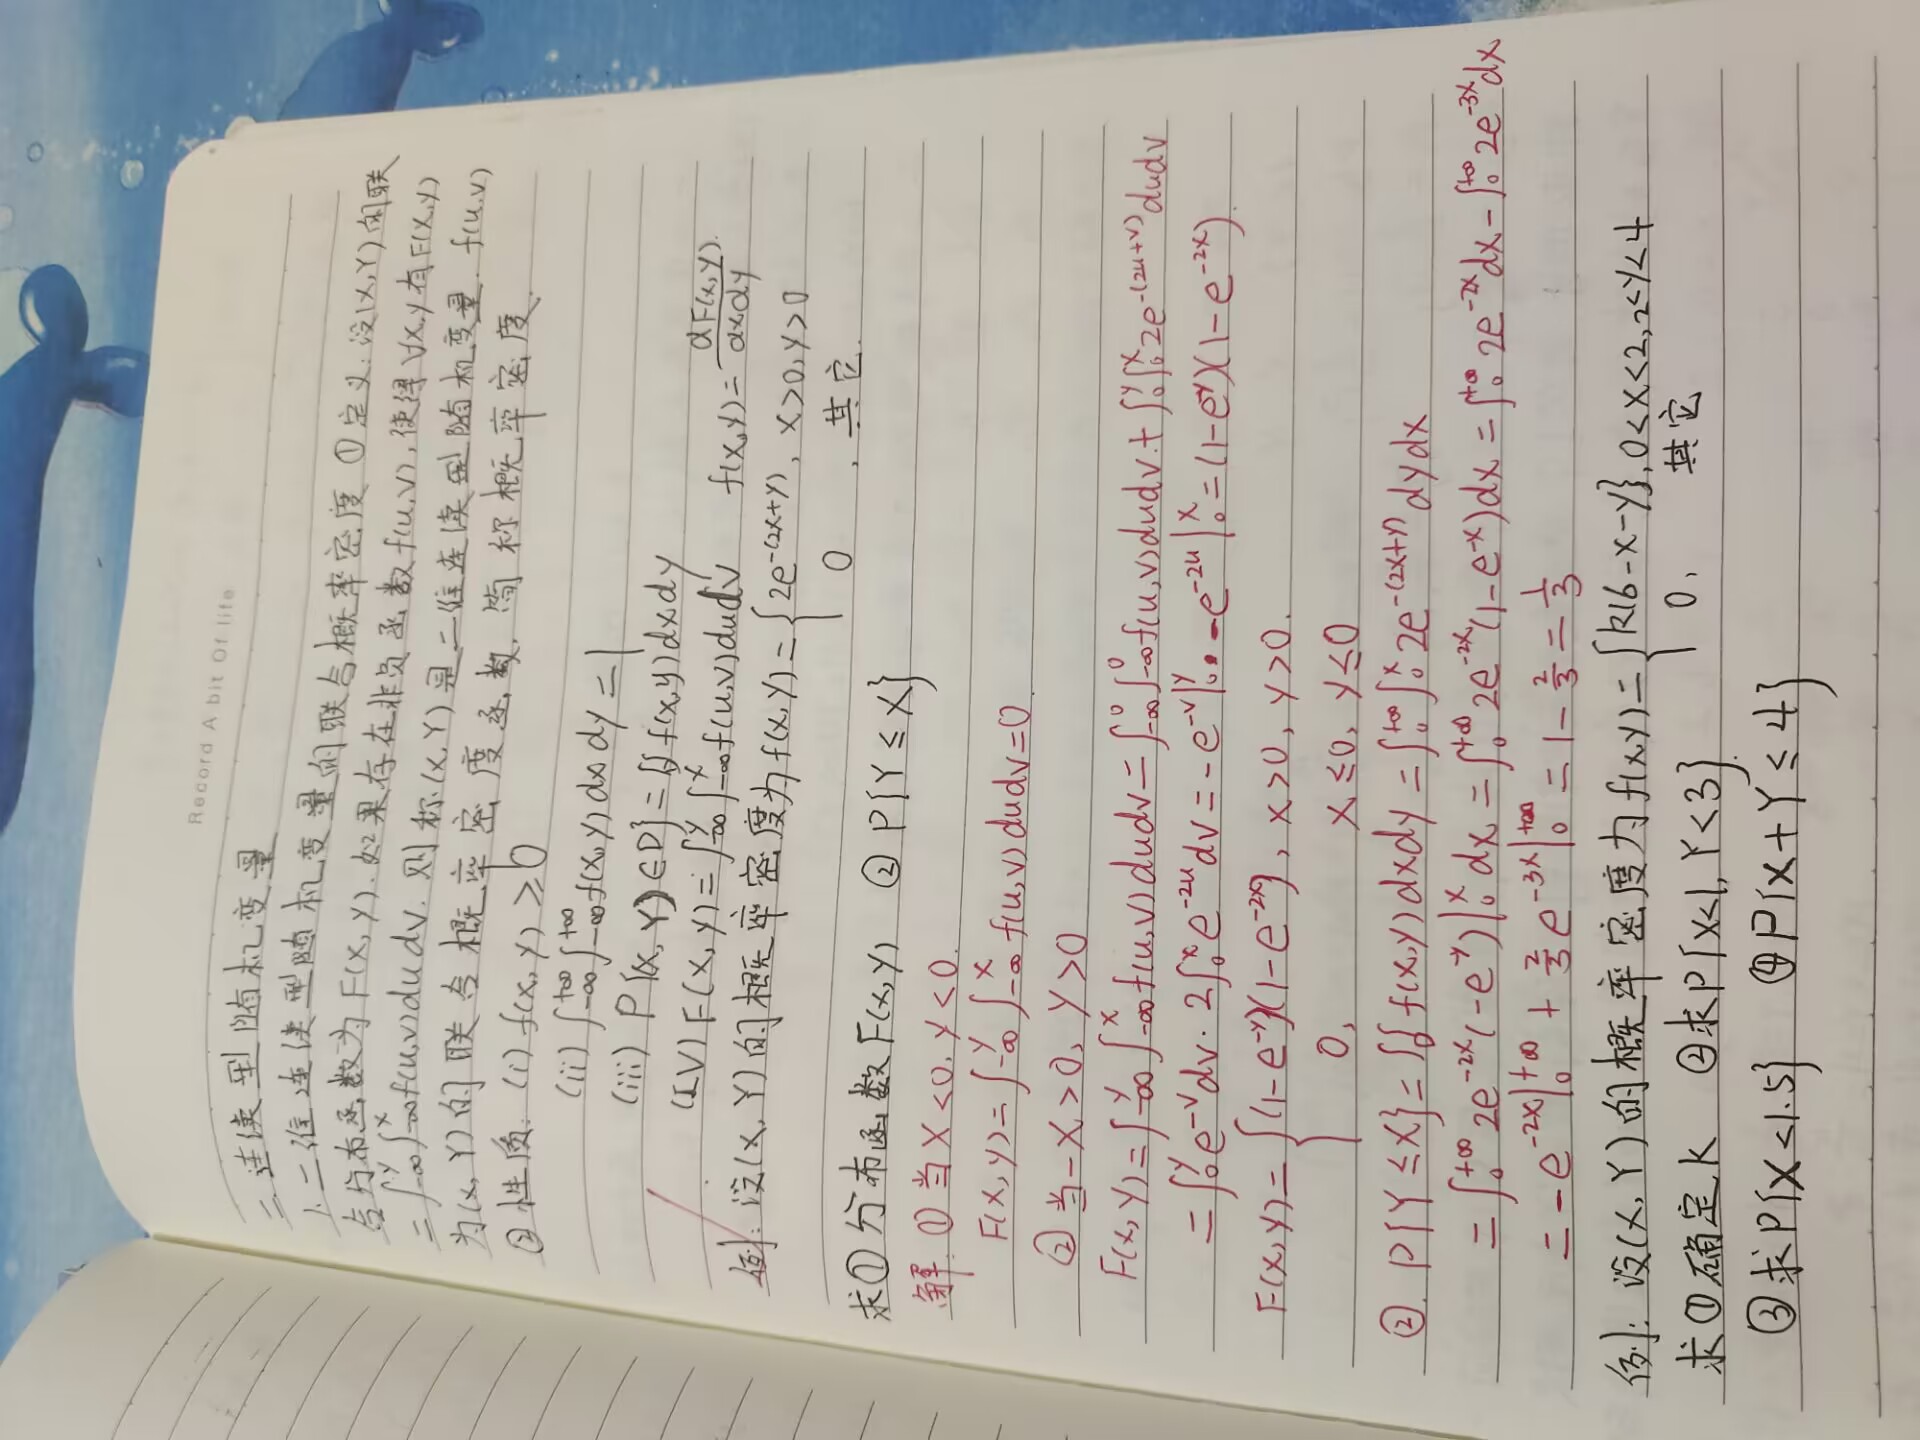 Record A bit Of life
二.连续型随机变量
1.二维连续型随机变量的联合概率密度 ①定义:设(X,Y)的联
合分布函数为F(x,y).如果存在非负函数f(u,v),使得∀x,y有F(x,y)
=∫_{-∞}^{y}∫_{-∞}^{x}f(u,v)dudv.则称(X,Y)是二维连续型随机变量.f(u,v)
为(X,Y)的联合概率密度函数,简称概率密度.
②性质:(i) f(x,y)≥0
(ii) ∫_{-∞}^{+∞}∫_{-∞}^{+∞}f(x,y)dxdy=1
(iii) P{(X,Y)∈D}=∬f(x,y)dxdy
(IV) F(x,y)=∫_{-∞}^{y}∫_{-∞}^{x}f(u,v)dudv f(x,y)=dF(x,y)/dxdy.
例:设(X,Y)的概率密度为f(x,y)={2e^{-(2x+y)}, x>0,y>0
0 ,其它.
求①分布函数F(x,y) ②P{Y≤X}
解:①当x<0,y<0.
F(x,y)=∫_{-∞}^{y}∫_{-∞}^{x}f(u,v)dudv=0
②当-x>0,y>0
F(x,y)=∫_{-∞}^{y}∫_{-∞}^{x}f(u,v)dudv=∫_{-∞}^{0}∫_{-∞}^{0}f(u,v)dudv+∫_{0}^{y}∫_{0}^{x}2e^{-(2u+v)}dudv
=∫_{0}^{y}e^{-v}dv·2∫_{0}^{x}e^{-2u}dv=-e^{-v}|_{0}^{y}·-e^{-2u}|_{0}^{x}=(1-e^{-y})(1-e^{-2x}).
F(x,y)={(1-e^{-y})(1-e^{-2x}), x>0,y>0.
0, x≤0,y≤0
②.P{Y≤X}=∬f(x,y)dxdy=∫_{0}^{+∞}∫_{0}^{x}2e^{-(2x+y)}dydx
=∫_{0}^{+∞}2e^{-2x}(-e^{-y})|_{0}^{x}dx=∫_{0}^{+∞}2e^{-2x}(1-e^{-x})dx=∫_{0}^{+∞}2e^{-2x}dx-∫_{0}^{+∞}2e^{-3x}dx
=-e^{-2x}|_{0}^{+∞}+2/3e^{-3x}|_{0}^{+∞}=1-2/3=1/3
例:设(X,Y)的概率密度为f(x,y)={k(6-x-y},0<x<2,2<y<4
0, 其它
求①确定k ②求P{X<1,Y<3}.
③求P{X<1.5} ④P{X+Y≤4}